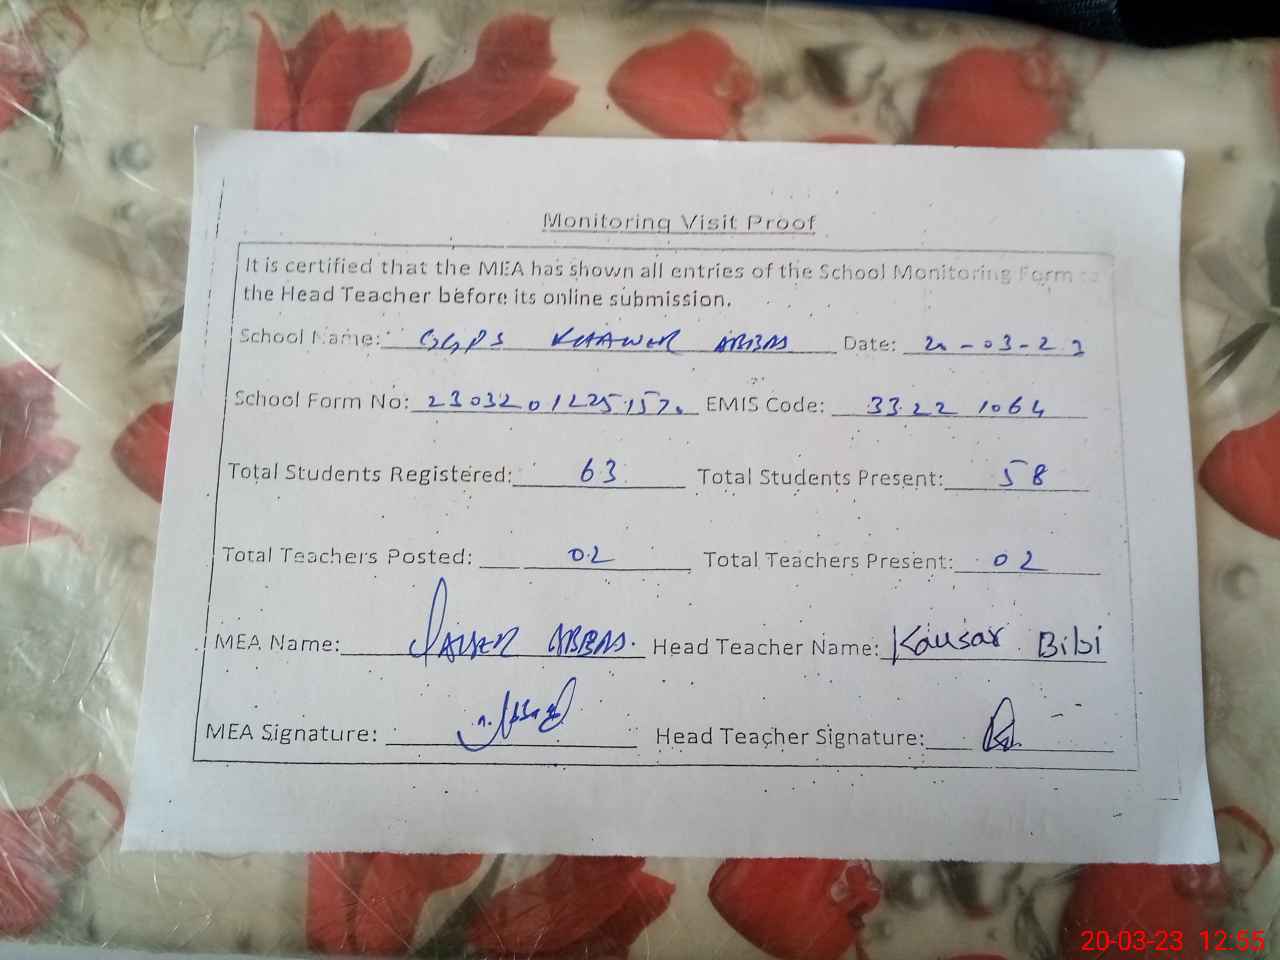 Monitoring Visit Proof
It is certified that the MEA has shown all entries of the School Monitoring Form to
the Head Teacher before its online submission.
School Name: GGPS KHAWER ABBAS Date: 20-03-23
School Form No: EMIS Code: 33221064
Total Students Registered: 63 Total Students Present: 58
Total Teachers Posted: 02 Total Teachers Present: 02
MEA Name: ABBAS. Head Teacher Name: Kausar Bibi
MEA Signature: Head Teacher Signature:
20-03-23 12:55